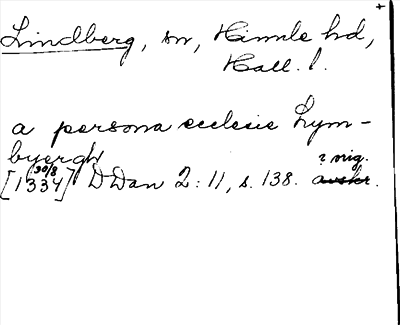 +
Lindberg, sn, Himle hd,
Hall. l.
a persona ecclesie Lym-
byergh
30/8 ? orig.
[1334] DDan 2:11, s. 138. avskr.